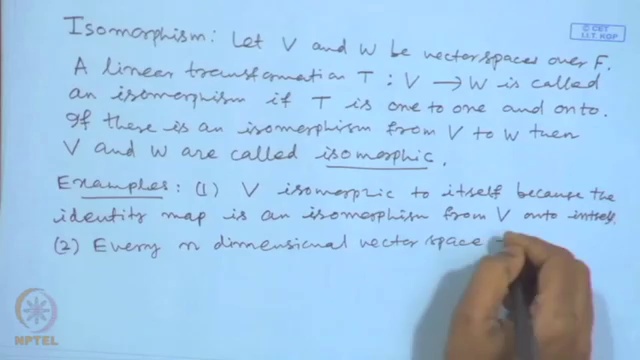 © CET
I.I.T. KGP
Isomorphism: Let V and W be vector spaces over F.
A linear transformation T : V → W is called
an isomorphism if T is one to one and onto.
If there is an isomorphism from V to W then
V and W are called isomorphic.
Examples: (1) V isomorphic to itself because the
identity map is an isomorphism from V onto intself.
(2) Every n dimensional vector space
NPTEL